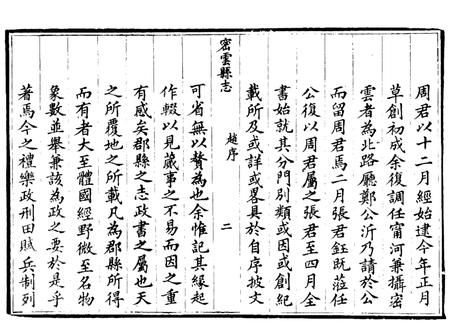 周君以十二月經始逮今年正月
草創初成余復調任甯河兼攝密
雲者為北路廳鄭公沂乃請於公
而留周君焉二月張君鈺既蒞任
公復以周君屬之張君至四月全
書始就其分門別類或因或創紀
載所及或詳或畧具於自序披文
密雲縣志
趙序
二
可省無以贅為也余惟記其緣起
作輟以見蕆事之不易而因之重
有感矣郡縣之志政書之屬也天
之所覆地之所載凡為郡縣所得
而有者大至體國經野微至名物
象數並舉兼該為政之要於是乎
著焉今之禮樂政刑田賦兵制列